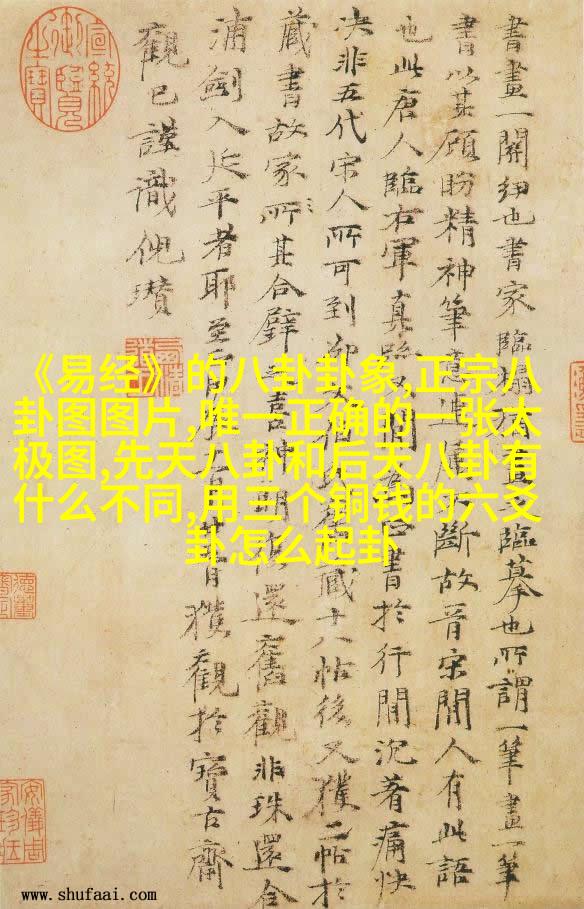 書畫一關紐也書家臨臨摹也所謂一筆畫一筆
書以其顧盼精神筆意斷故晉宋間人有此語
也此唐人臨右軍真書於行間沉著痛快
決非五代宋人所可到十八帖後又獲二帖於
蔵書故家所其合璧還舊觀非珠還合
浦劍入延平者耶至獲觀於寶古齋
觀已謹識倪瓚
宣統御覽之寶
安儀周家珍藏
《易经》的八卦卦象,正宗八
卦图图片,唯一正确的一张太
极图,先天八卦和后天八卦有
什么不同,用三个铜钱的六爻
卦怎么起卦
www.shufaai.com